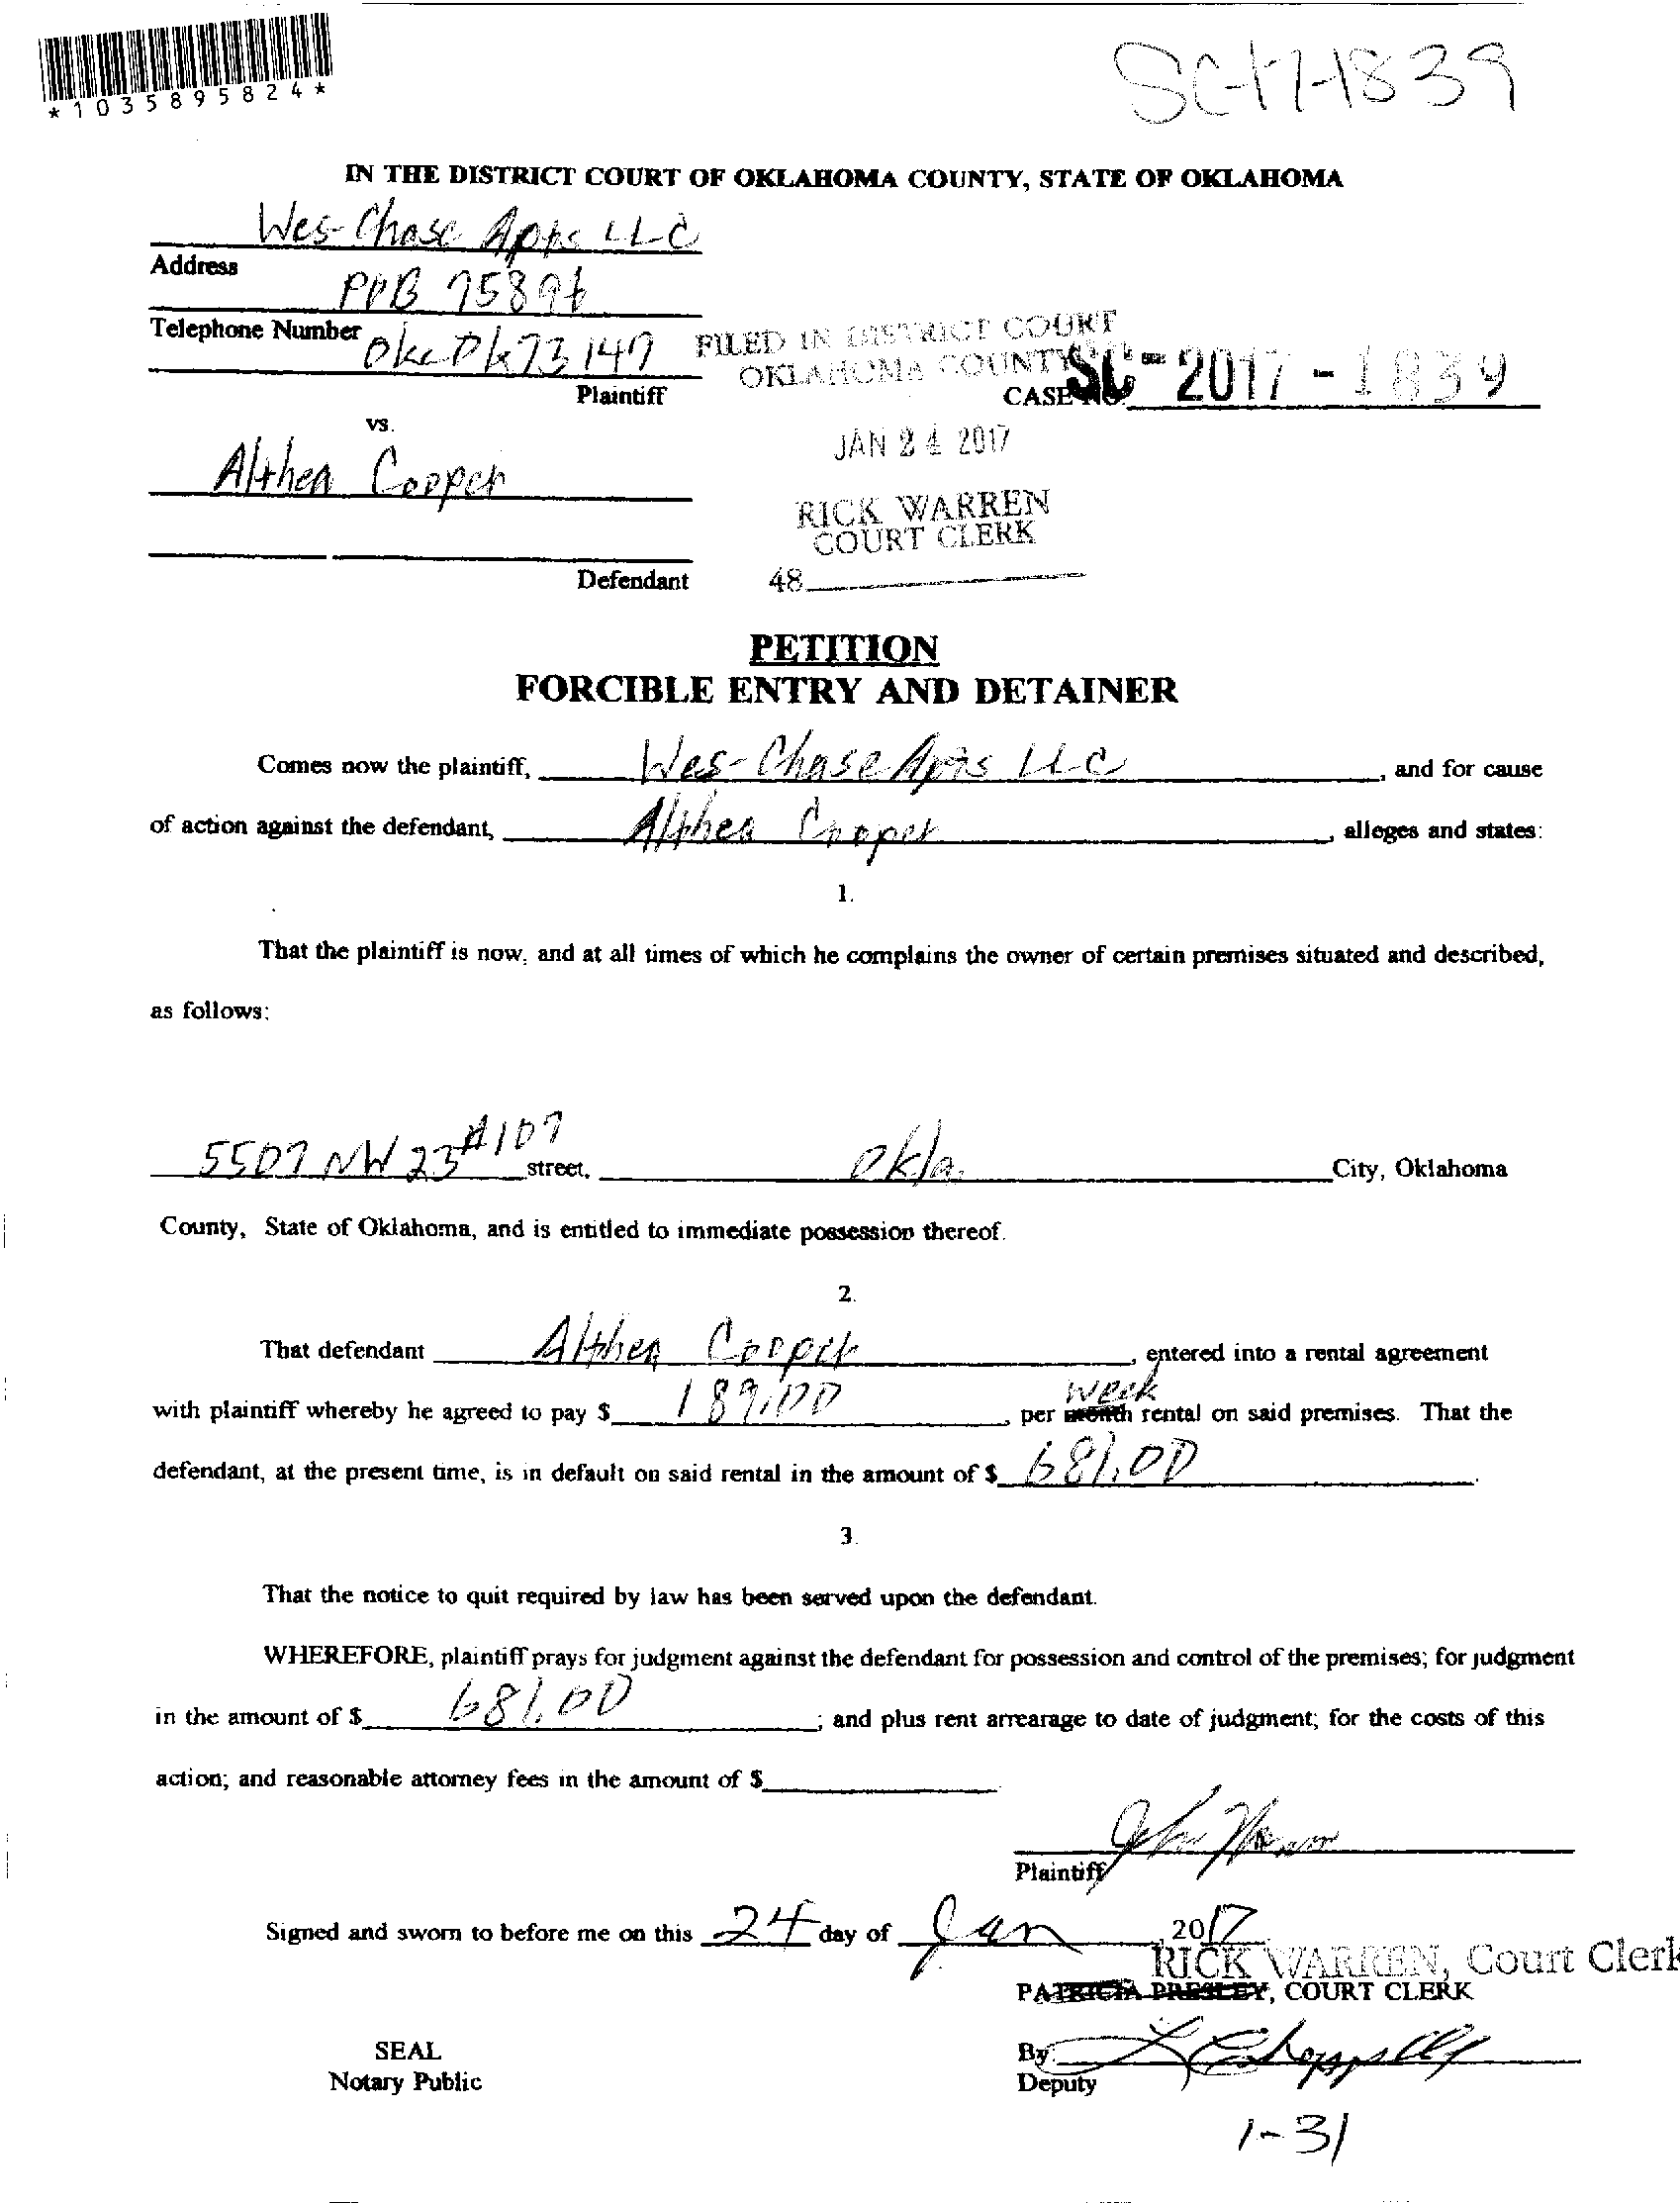 *1035895824*
SC-17-1839
IN THE DISTRICT COURT OF OKLAHOMA COUNTY, STATE OF OKLAHOMA
Wes-Chase Apts LLC
Address
POB 75896
Telephone Number
Okc Ok 73147
Plaintiff
FILED IN DISTRICT COURT
OKLAHOMA COUNTY
CASE NO. SC-2017-1839
vs.
JAN 24 2017
Althea Cooper
RICK WARREN
COURT CLERK
Defendant
48
PETITION
FORCIBLE ENTRY AND DETAINER
Comes now the plaintiff, Wes-Chase Apts LLC, and for cause
of action against the defendant, Althea Cooper, alleges and states:
1.
That the plaintiff is now, and at all times of which he complains the owner of certain premises situated and described,
as follows:
5507 NW 23 #107 street, Okla. City, Oklahoma
County, State of Oklahoma, and is entitled to immediate possession thereof.
2.
That defendant Althea Cooper, entered into a rental agreement
week
with plaintiff whereby he agreed to pay $ 189.00, per month rental on said premises. That the
defendant, at the present time, is in default on said rental in the amount of $ 681.00.
3.
That the notice to quit required by law has been served upon the defendant.
WHEREFORE, plaintiff prays for judgment against the defendant for possession and control of the premises; for judgment
in the amount of $ 681.00; and plus rent arrearage to date of judgment; for the costs of this
action; and reasonable attorney fees in the amount of $
Plaintiff
Signed and sworn to before me on this 24 day of Jan, 2017
RICK WARREN, Court Clerk
PATRICIA PRESLEY, COURT CLERK
SEAL
Notary Public
By
Deputy
1-31